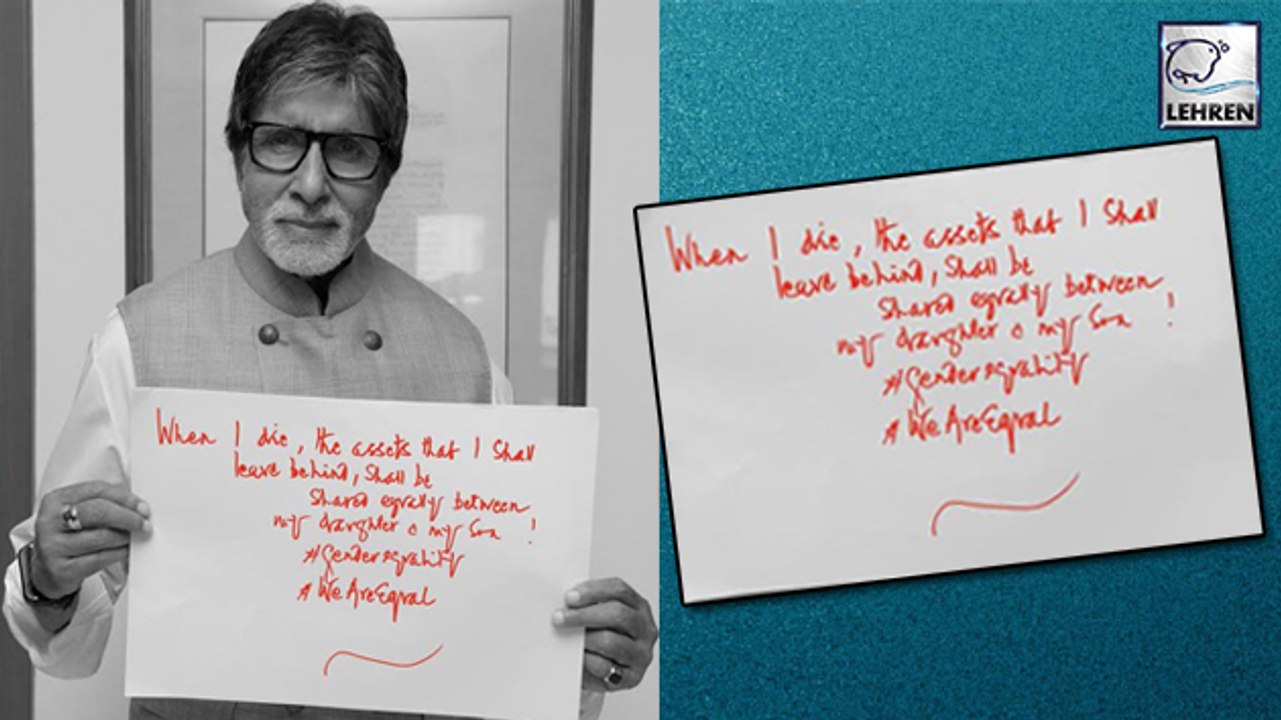 When I die, the assets that I shall
leave behind, shall be
shared equally between
my daughter & my son !
#genderequality
#WeAreEqual
LEHREN
When I die, the assets that I shall
leave behind, shall be
shared equally between
my daughter & my son !
#genderequality
#WeAreEqual